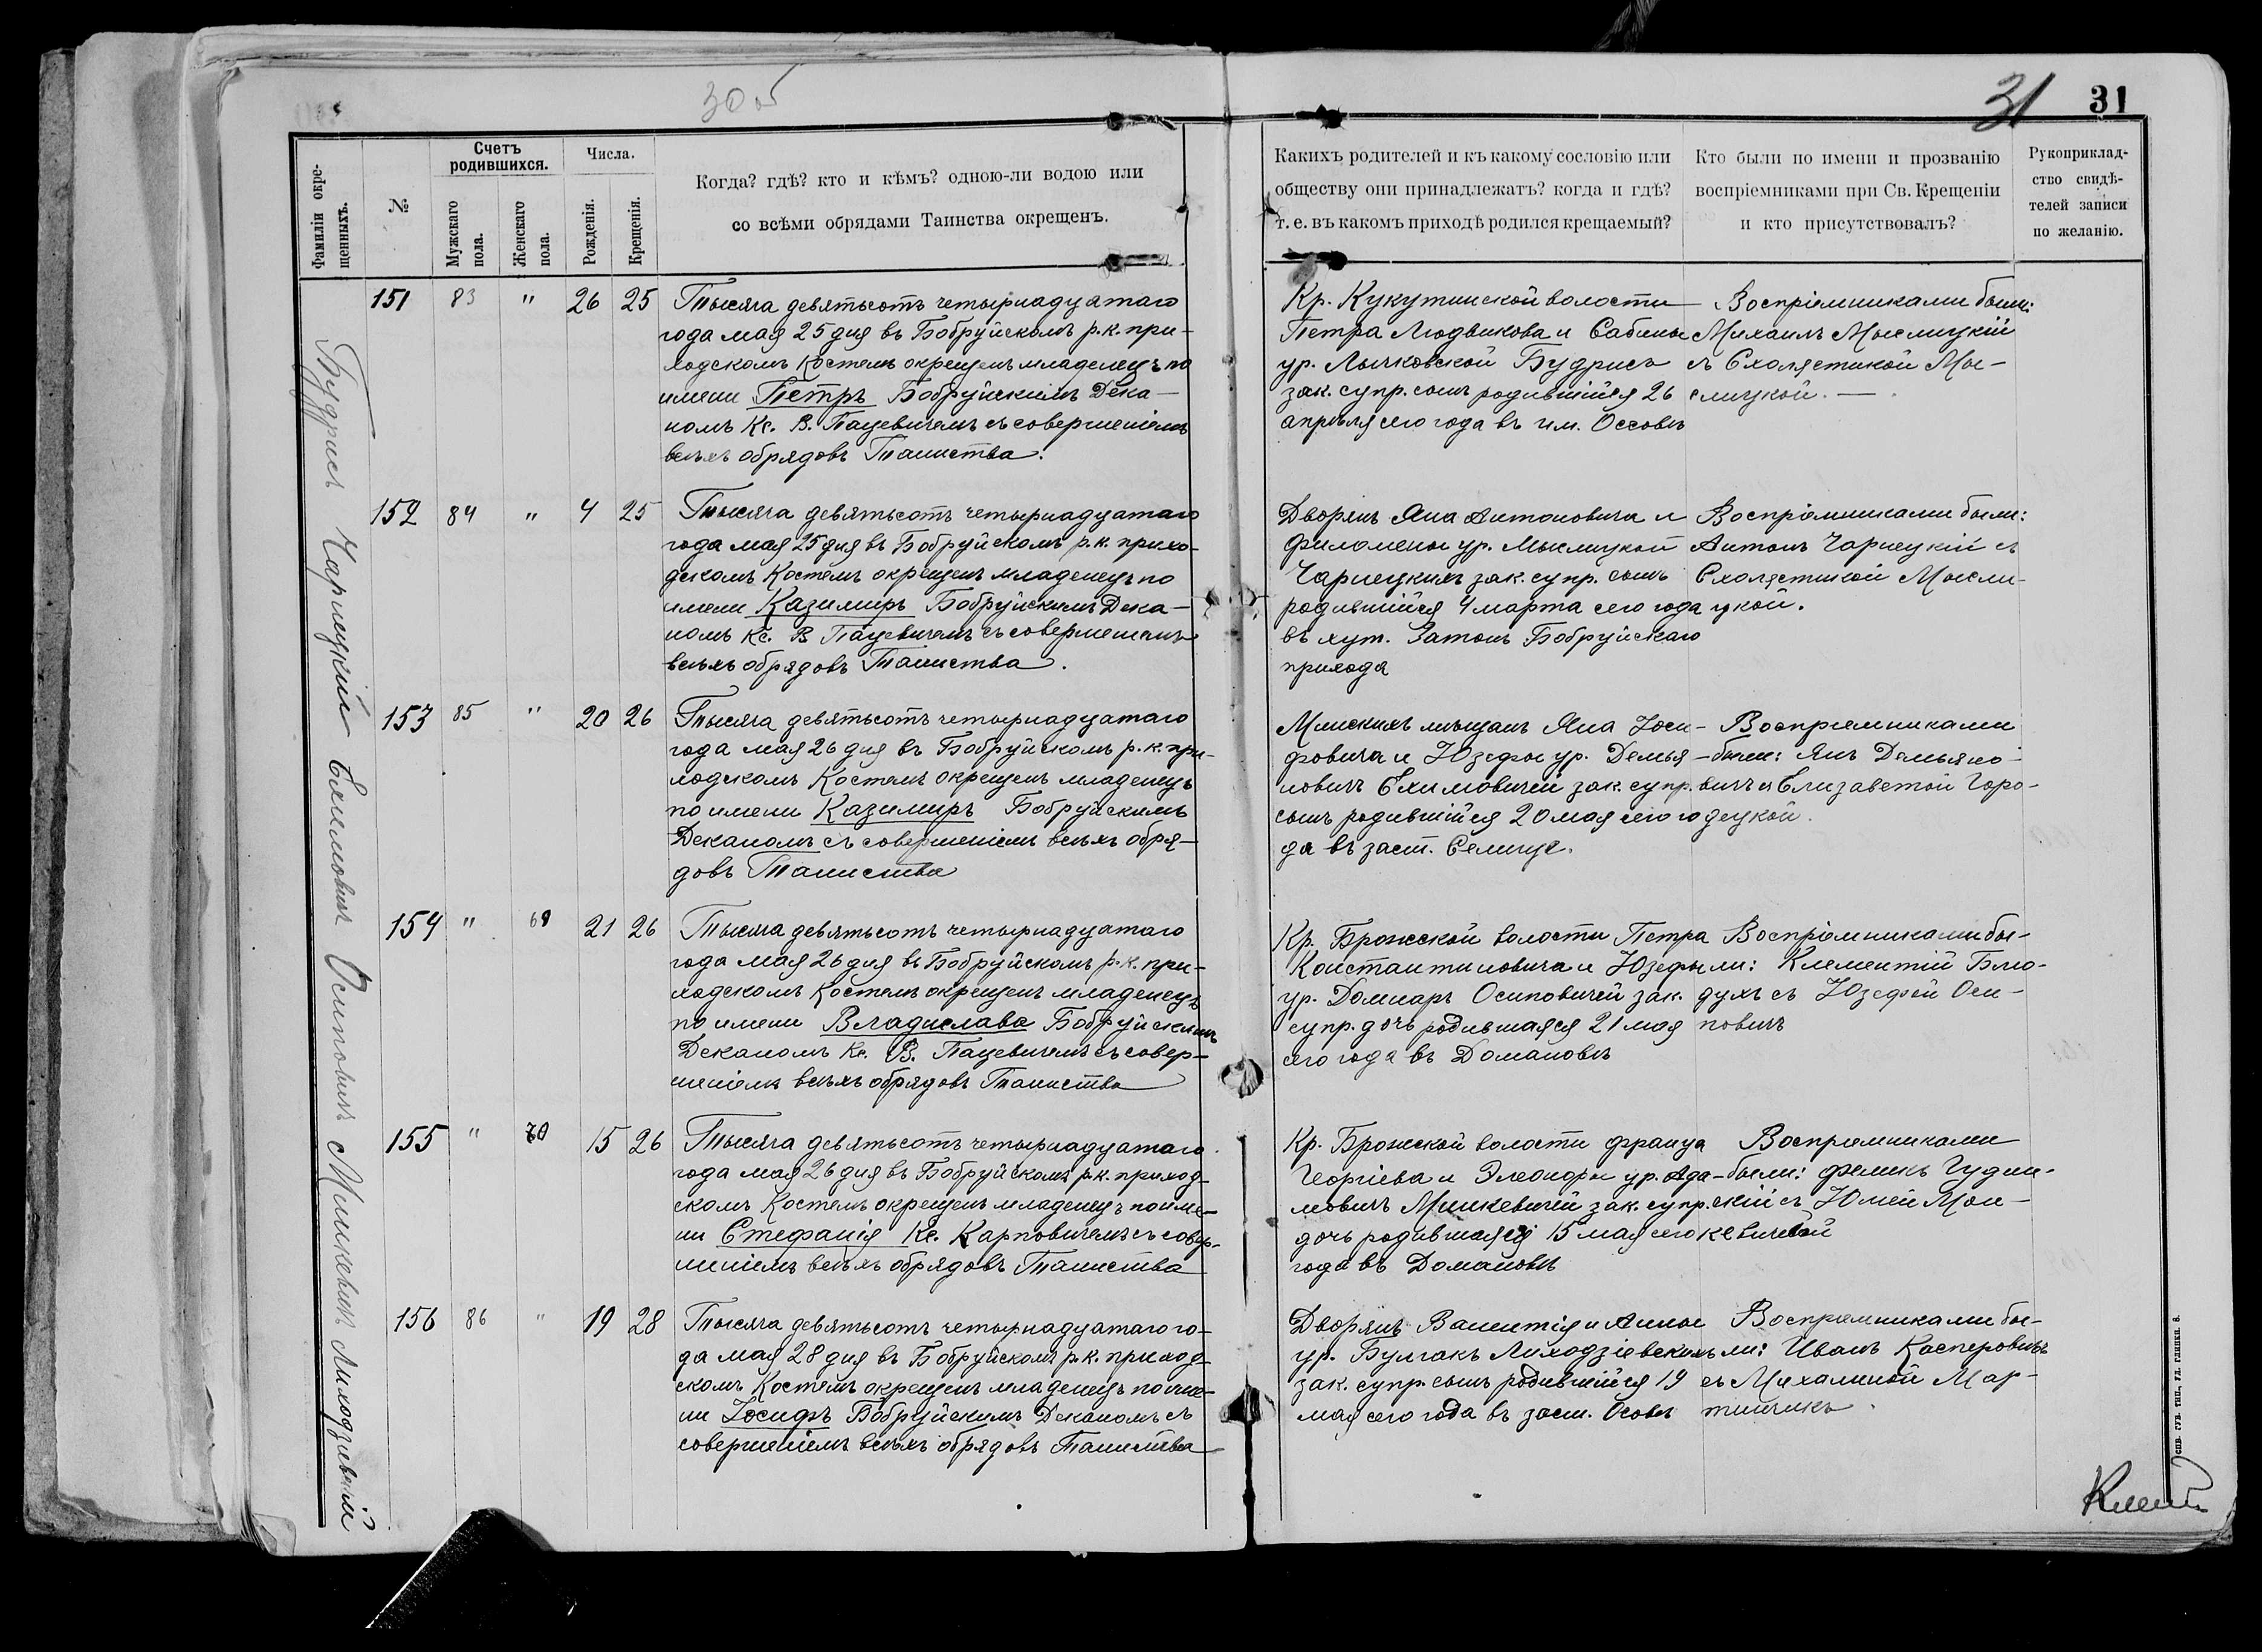 30 об
31 31
Фамиліи окре-
щенныхъ.
№
Счетъ
родившихся.
Мужскаго
пола.
Женскаго
пола.
Числа.
Рожденія.
Крещенія.
Когда? гдѣ? кто и кѣмъ? одною-ли водою или
со всѣми обрядами Таинства окрещенъ.
Какихъ родителей и къ какому сословію или
обществу они принадлежатъ? когда и гдѣ?
т. е. въ какомъ приходѣ родился крещаемый?
Кто были по имени и прозванію
воспріемниками при Св. Крещеніи
и кто присутствовалъ?
Рукоприклад-
ство свидѣ-
телей записи
по желанію.
Будрисъ
151 83 " 26 25
Тысяча девятьсотъ четырнадцатаго
года мая 25 дня въ Бобруйскомъ р.к. при-
ходскомъ Костелѣ окрещенъ младенецъ по
имени Петръ Бобруйскимъ Дека-
номъ Кс. В. Пацевичемъ съ совершеніемъ
всѣхъ обрядовъ Таинства.
Кр. Кукутинской волости
Петра Людвикова и Сабины
ур. Лычковской Будрисъ
зак. супр. сынъ родившійся 26
апрѣля сего года въ им. Оссовѣ
Воспріемниками были:
Михаилъ Мыслицкій
съ Схолястикой Мы-
слицкой. —
Чарнецкій
152 84 " 4 25
Тысяча девятьсотъ четырнадцатаго
года мая 25 дня въ Бобруйскомъ р.к. прихо-
дскомъ Костелѣ окрещенъ младенецъ по
имени Казимиръ Бобруйскимъ Дека-
номъ Кс. В Пацевичемъ съ совершеніемъ
всѣхъ обрядовъ Таинства.
Дворянъ Яна Антоновича и
Филомены ур. Мыслицкой
Чарнецкихъ зак. супр. сынъ
родившійся 4 марта сего года
въ хут. Затонъ Бобруйскаго
прихода
Воспріемниками были:
Антонъ Чарнецкій съ
Схолястикой Мысли-
цкой.
Ехимовичъ
153 85 " 20 26
Тысяча девятьсотъ четырнадцатаго
года мая 26 дня въ Бобруйскомъ р.к. при-
ходскомъ Костелѣ окрещенъ младенецъ
по имени Казимиръ Бобруйскимъ
Деканомъ съ совершеніемъ всѣхъ обря-
довъ Таинства
Минскихъ мѣщанъ Яна Іоси-
фовича и Юзефы ур. Демья-
новичъ Ехимовичей зак. супр.
сынъ родившійся 20 мая сего го
да въ заст. Селище.
Воспріемниками
были: Янъ Демьяно-
вичъ съ Елизаветой Горо-
децкой.
Осиповичъ
154 " 69 21 26
Тысяча девятьсотъ четырнадцатаго
года мая 26 дня въ Бобруйскомъ р.к. при-
ходскомъ Костелѣ окрещенъ младенецъ
по имени Владислава Бобруйскимъ
Деканомъ Кс. В. Пацевичемъ съ совер-
шеніемъ всѣхъ обрядовъ Таинства
Кр. Брожской волости Петра
Константиновича и Юзефы
ур. Домнаръ Осиповичей зак.
супр. дочь родившаяся 21 мая
сего года въ Домановѣ
Воспріемниками бы-
ли: Клементій Блю-
духъ съ Юзефой Оси-
повичъ
Минкевичъ
155 " 70 15 26
Тысяча девятьсотъ четырнадцатаго
года мая 26 дня въ Бобруйскомъ р.к. приход-
скомъ Костелѣ окрещенъ младенецъ по име-
ни Стефанія Кс. Карповичемъ съ совер-
шеніемъ всѣхъ обрядовъ Таинства
Кр. Брожской волости Франца
Георгіева и Элеоноры ур. Ада-
мовичъ Минкевичей зак. супр.
дочь родившаяся 15 мая сего
года въ Домановѣ
Воспріемниками
были: Феликъ Гудин-
скій съ Юліей Мон-
кевичевой
Лиходзіевскій
156 86 " 19 28
Тысяча девятьсотъ четырнадцатаго го-
да мая 28 дня въ Бобруйскомъ р.к. приход-
скомъ Костелѣ окрещенъ младенецъ по име-
ни Іосифъ Бобруйскимъ Деканомъ съ
совершеніемъ всѣхъ обрядовъ Таинства
Дворянъ Валентія и Анны
ур. Булгакъ Лиходзіевскихъ
зак. супр. сынъ родившійся 19
мая сего года въ заст. Осовѣ
Воспріемниками бы-
ли: Иванъ Касперовичъ
съ Михалиной Мар-
тинчикъ.